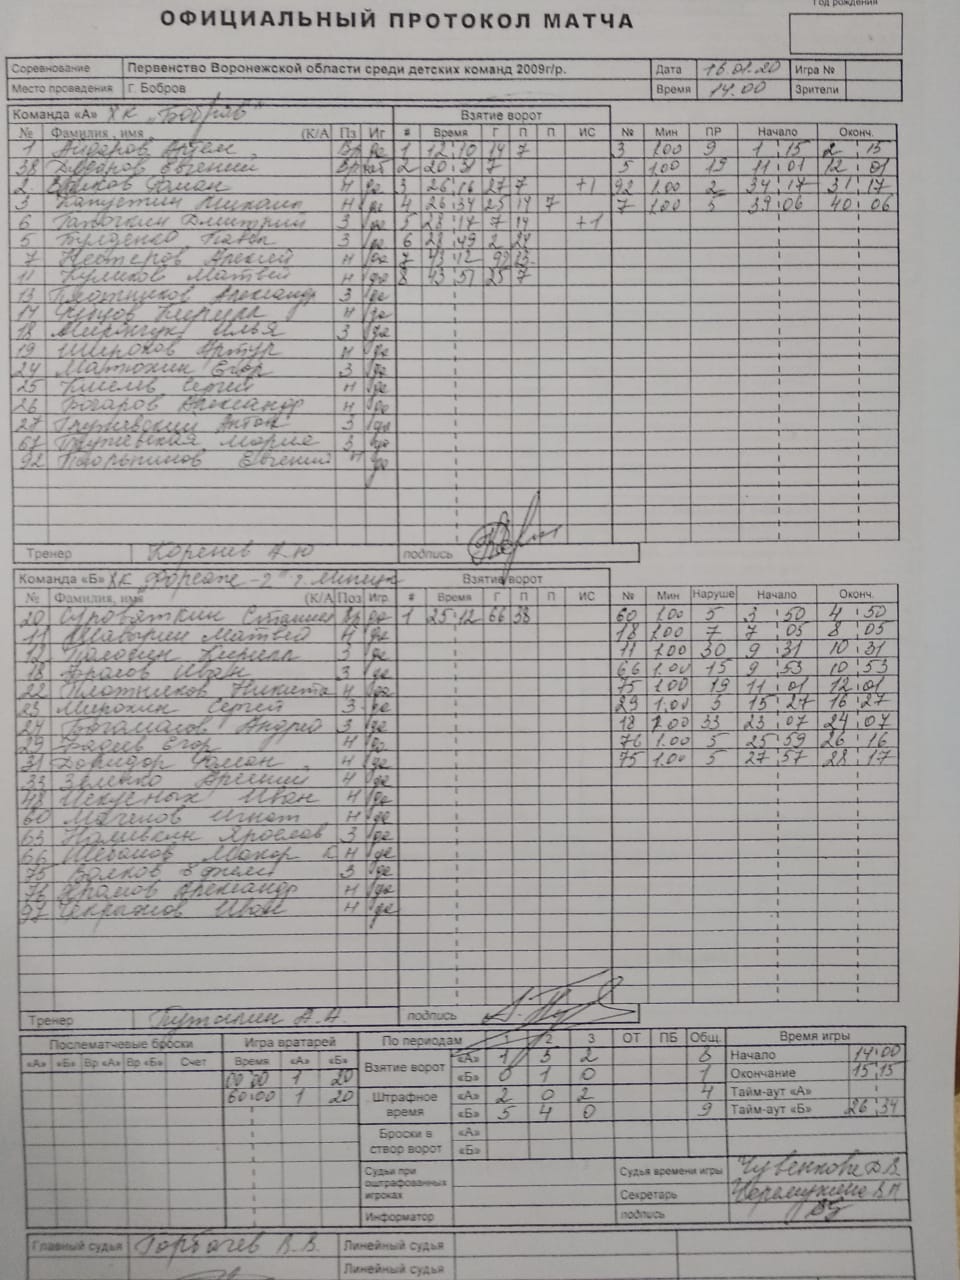 Год рождения
ОФИЦИАЛЬНЫЙ ПРОТОКОЛ МАТЧА
Соревнование Первенство Воронежской области среди детских команд 2009г/р. Дата 18.01.20 Игра №
Место проведения Г. Бобров Время 14.00 Зрители
Команда «А» ХК "Бобров" Взятие ворот
№ Фамилия, имя (К/А Пз Иг # Время Г П П ИС № Мин ПР Начало Оконч.
1 Айдаров Артем Вр да 1 12 10 14 7 3 1.00 9 1 15 2 15
38 Евгений Вр 2 20 31 7 5 1.00 19 11 01 12 01
2 Роман Н да 3 26 16 27 7 +1 92 1.00 2 31 17
3 Капустин Михаил Н да 4 26 34 25 14 7 7 1.00 5 39 06 40 06
6 Дмитрий З да 5 28 17 7 14 +1
5 Павел З да 6 28 49 2 24
7 Нестеров Алексей Н да 7 43 12 92 23
11 Куликов Матвей Н да 8 43 51 25 7
13 Плотников Александр З да
14 Кирилл Н да
18 Илья З да
19 Широков Артур Н да
24 Матюхин Егор З да
25 Киселев Сергей Н да
26 Бочаров Александр Н да
27 Антон З да
67 Мария З да
92 Евгений Н да
Тренер Коренев А.Ю подпись
Команда «Б» ХК Форсаж-2" г. Липецк Взятие ворот
№ Фамилия, имя (К/А Поз Игр. # Время Г П П ИС № Мин Наруше Начало Оконч.
20 Суроваткин Вр да 1 25 12 66 38 60 1.00 5 3 50 4 50
11 Матвей Н да 18 1.00 7 7 05 8 05
12 Кирилл З да 11 1.00 30 9 31 10 31
18 Иван З да 66 1.00 15 9 53 10 53
22 Плотников Никита Н да 75 1.00 19 11 01 12 01
23 Мирохин Сергей З да 29 1.00 5 15 27 16 27
24 Богомасов Андрей З да 18 1.00 33 23 07 24 07
29 Фадеев Егор Н да 76 1.00 5 25 59 26 16
31 Роман Н да 75 1.00 5 27 57 28 17
33 Зеленко Арсений Н да
48 Искусных Иван Н да
60 Игнат Н да
63 Наливкин Ярослав З да
66 Макар К Н да
75 Волков З да
76 Александр Н да
97 Чекрыжов Иван Н да
Тренер Путилин А.А. подпись
Послематчевые броски Игра вратарей По периодам 1 2 3 ОТ ПБ Общ. Время игры
«А» «Б» Вр «А» Вр «Б» Счет Время «А» «Б» Взятие ворот «А» 1 5 2 8 Начало 14 00
00 00 1 20 «Б» 0 1 0 1 Окончание 15 15
60 00 1 20 Штрафное время «А» 2 0 2 4 Тайм-аут «А»
«Б» 5 4 0 9 Тайм-аут «Б» 26 34
Броски в створ ворот «А»
«Б»
Судьи при оштрафованных игроках Судья времени игры Чувенкова Д.В.
Секретарь Черемухина В.Н
Информатор подпись
Главный судья Горбачев В.В. Линейный судья
Линейный судья